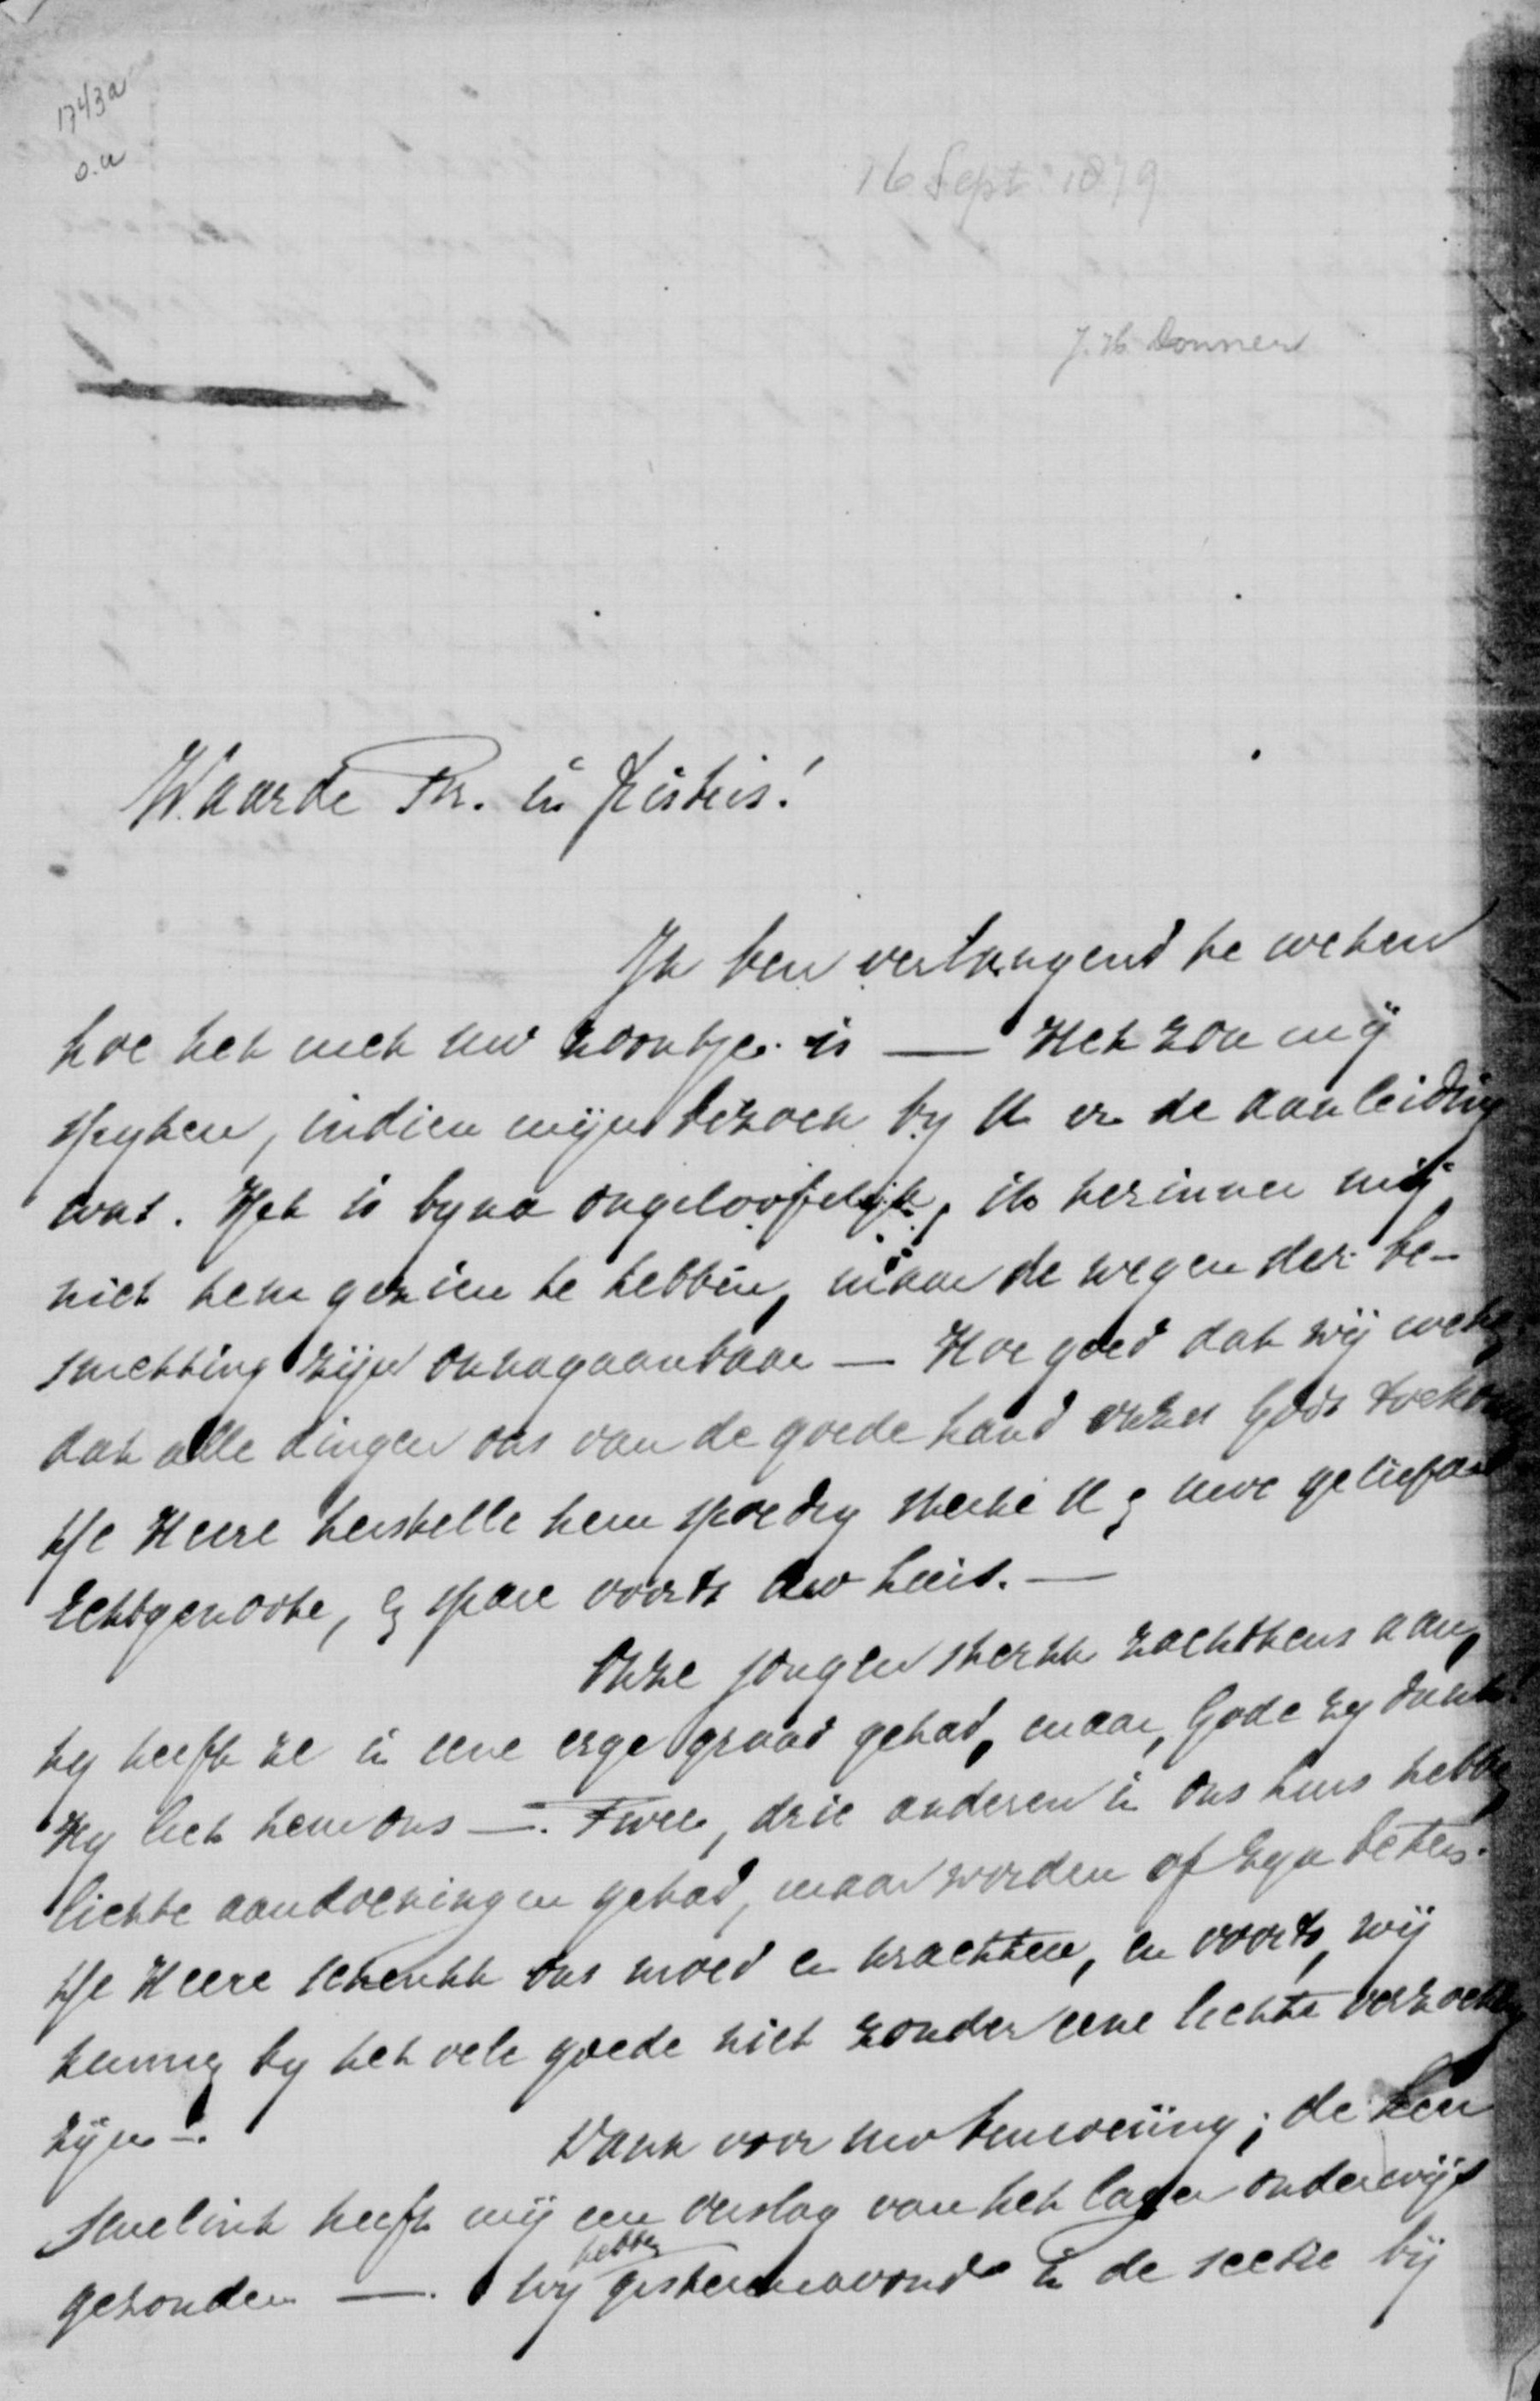 1743a
o.u
16 Sept 1879
J. H. Donner
Waarde Br. in Kristus!
Ik ben verlangend te weten
hoe het met uw zoontje is — Het zou mij
spyten, indien mijn bezoek by U er de aanleiding
was. Het is byna ongelooflijk, ik herinner mij
niet hem gezien te hebben, maar de wegen der be-
smetting zijn onnagaanbaar — Hoe goed dat wij weten
dat alle dingen ons van de goede hand onzes Gods toekomen
De Heere herstelle hem spoedig sterke U en uwe geliefde
Echtgenoote, en spare voorts uw huis. —
Onze jongen sterkt zachtkens aan,
hy heeft ze in eene erge graad gehad, maar, Gode zy dank!
Hy liet hem ons —. Twee, drie anderen in ons huis hebben
lichte aandoeningen gehad, maar worden of zyn beter.
De Heere schenkt ons moed en krachten, en voorts, wij
kunnen by het vele goede niet zonder eene lichte verzoeking
zijn —.
Dank voor uw bemoeiing; de heer
Smelink heeft mij een verslag van het lager onderwijs
gezonden —. Wy hebben gisterenavond in de sectie bij